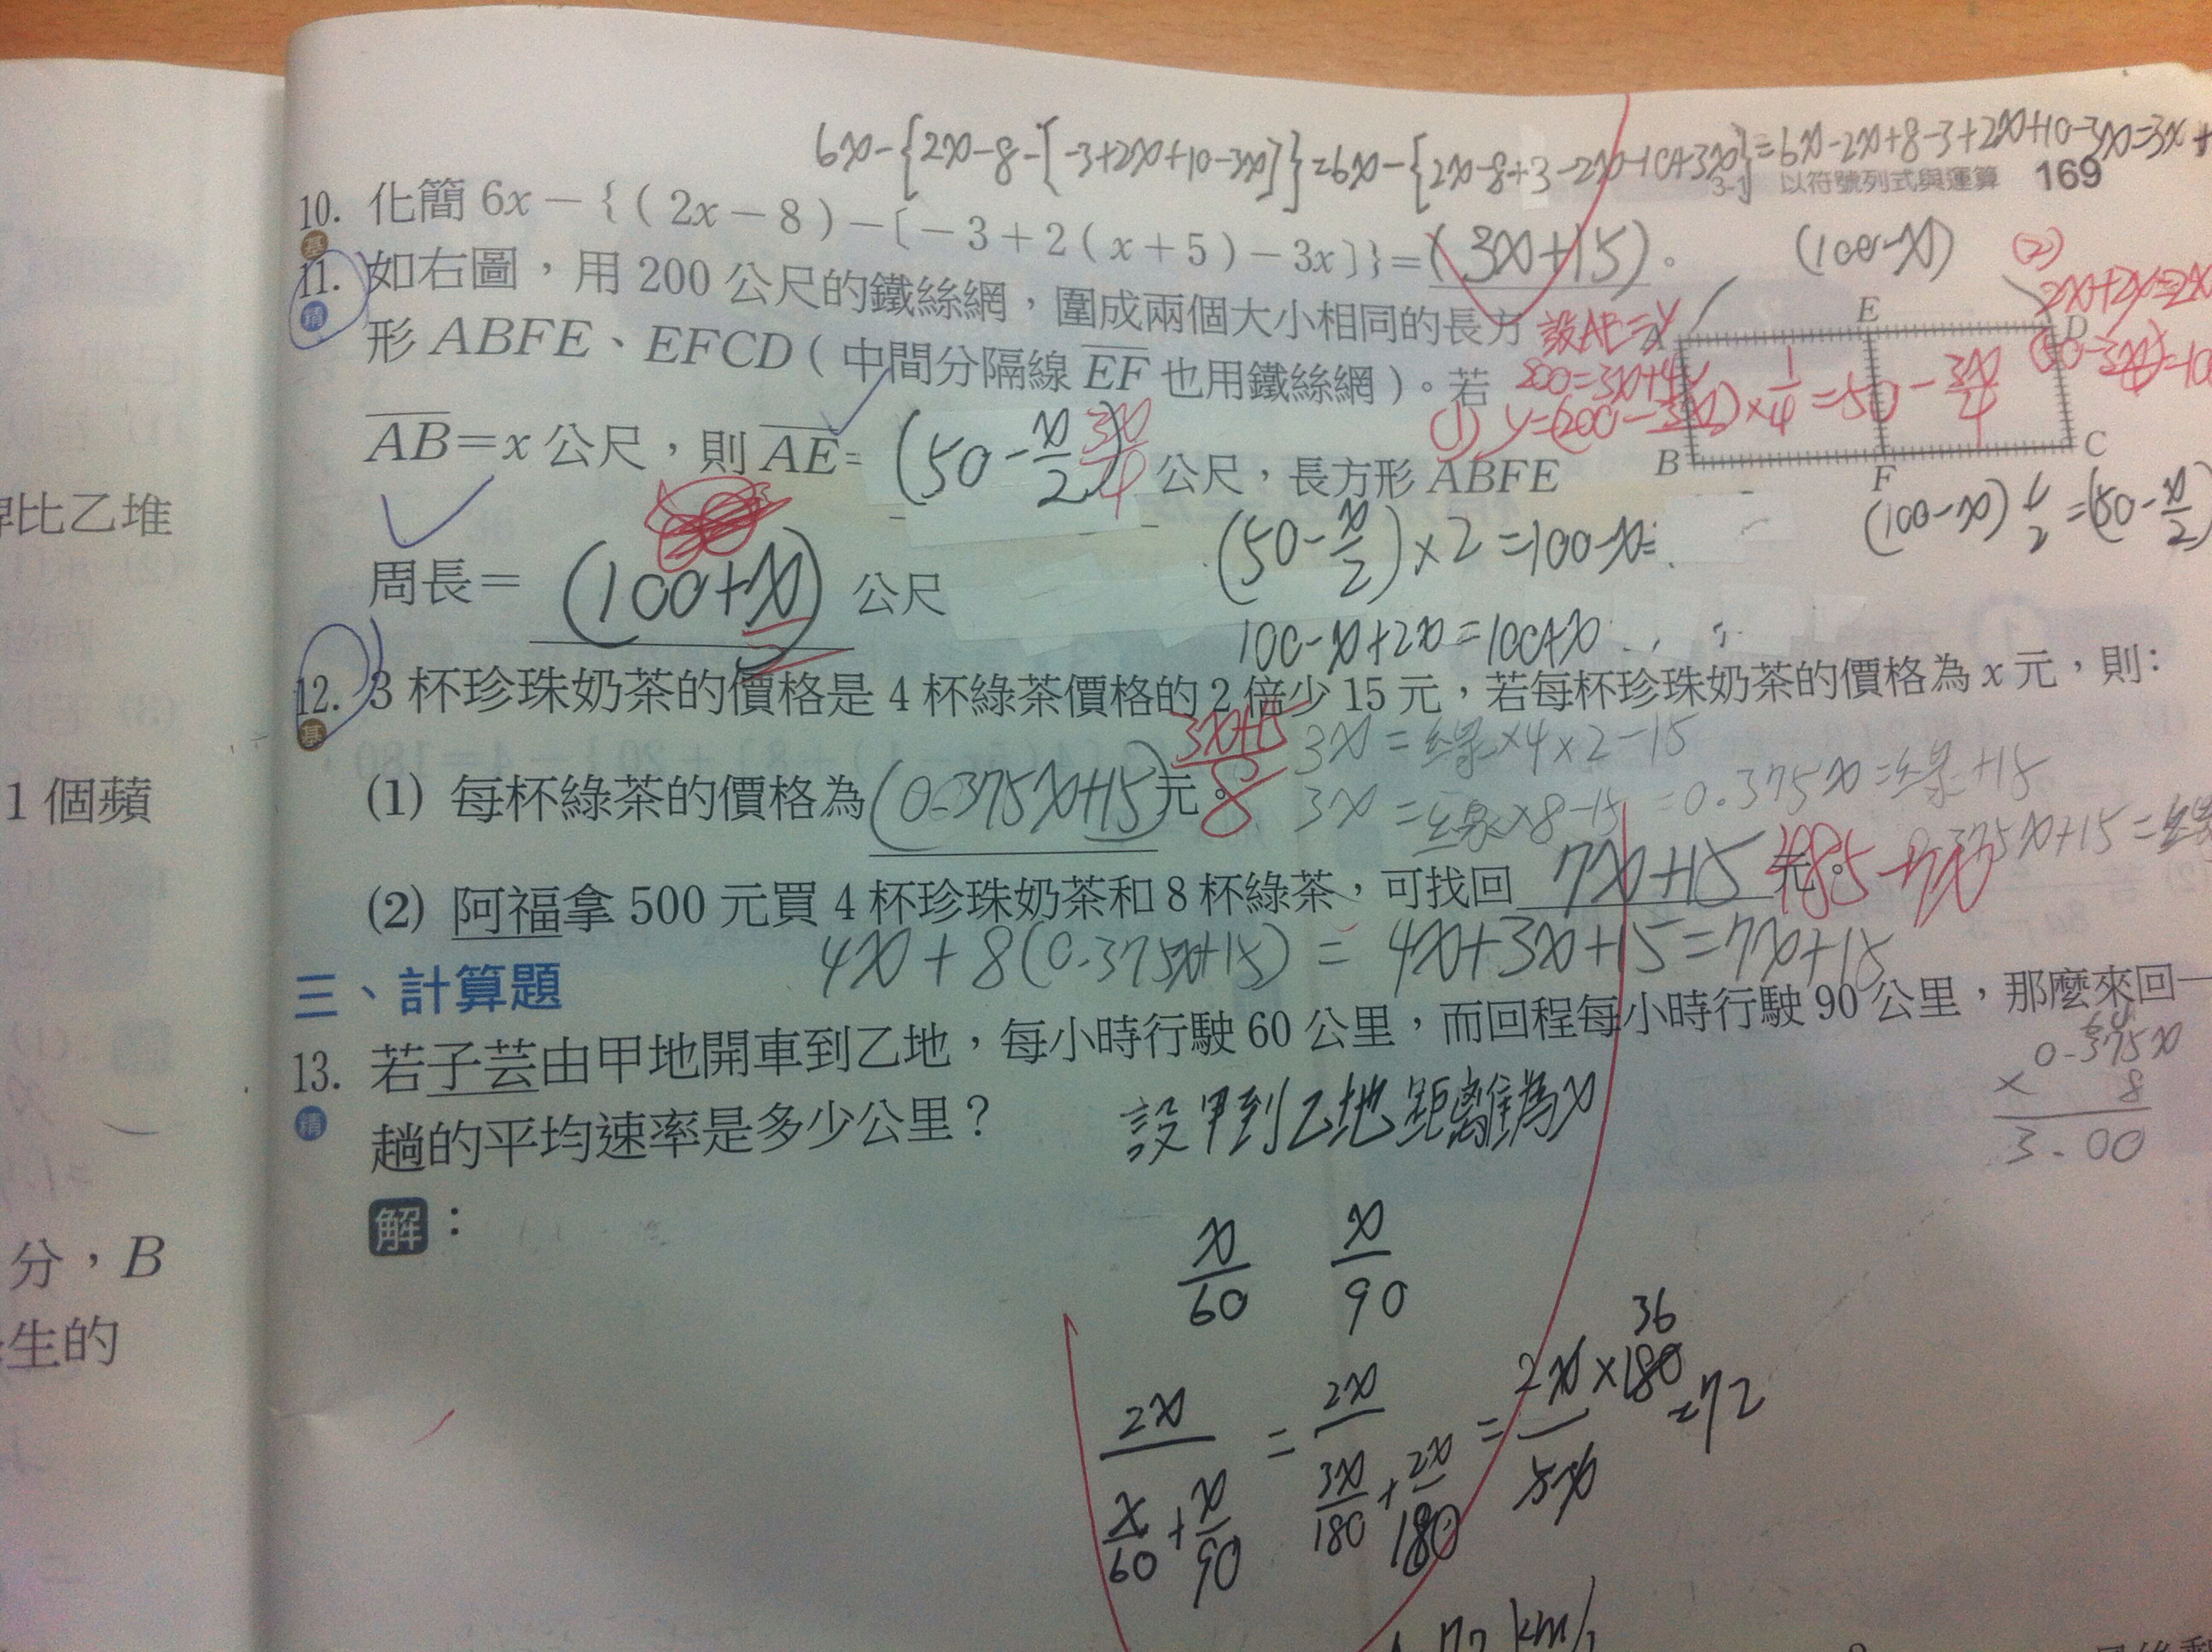 6x-{2x-8-[-3+2x+10-3x]}=6x-{2x-8+3-2x-10+3x}=6x-2x+8-3+2x+10-3x=3x+
3-1 以符號列式與運算 169
10. 化簡 6x－{(2x－8)－〔－3＋2(x＋5)－3x〕}＝(3x+15)。
基
(100-x)
(2)
11. 如右圖，用 200 公尺的鐵絲網，圍成兩個大小相同的長方
精
設AE=y
2x+2y=2x
A E D
形 ABFE、EFCD（中間分隔線 EF 也用鐵絲網）。若
200=3x+4y
AB＝x 公尺，則 AE= (50-x/2) 3x/4 公尺，長方形 ABFE
(1) y=(200-3x)×1/4=50-3x/4
B F C
(100-x)1/2=(50-x/2)
(50-x/2)×2=100-x
周長＝ (100+x) 公尺
2
100-x+2x=100+x
12. 3 杯珍珠奶茶的價格是 4 杯綠茶價格的 2 倍少 15 元，若每杯珍珠奶茶的價格為 x 元，則：
基
3x=綠×4×2-15
(1) 每杯綠茶的價格為(0.375x+15)元。
3x+15/8
3x=綠×8-15=0.375x=綠+15
0.375x+15=綠
(2) 阿福拿 500 元買 4 杯珍珠奶茶和 8 杯綠茶，可找回 7x+15 元。
485-7x
4x+8(0.375x+15)=4x+3x+15=7x+15
三、計算題
13. 若子芸由甲地開車到乙地，每小時行駛 60 公里，而回程每小時行駛 90 公里，那麼來回一
精
趟的平均速率是多少公里？
設甲到乙地距離為x
0.375x
× 8
3.00
解：
x/60 x/90
36
2x/(x/60+x/90)=2x/(3x/180+2x/180)=2x×180/5x=72
72 km/
早比乙堆
1 個蘋
分，B
生的